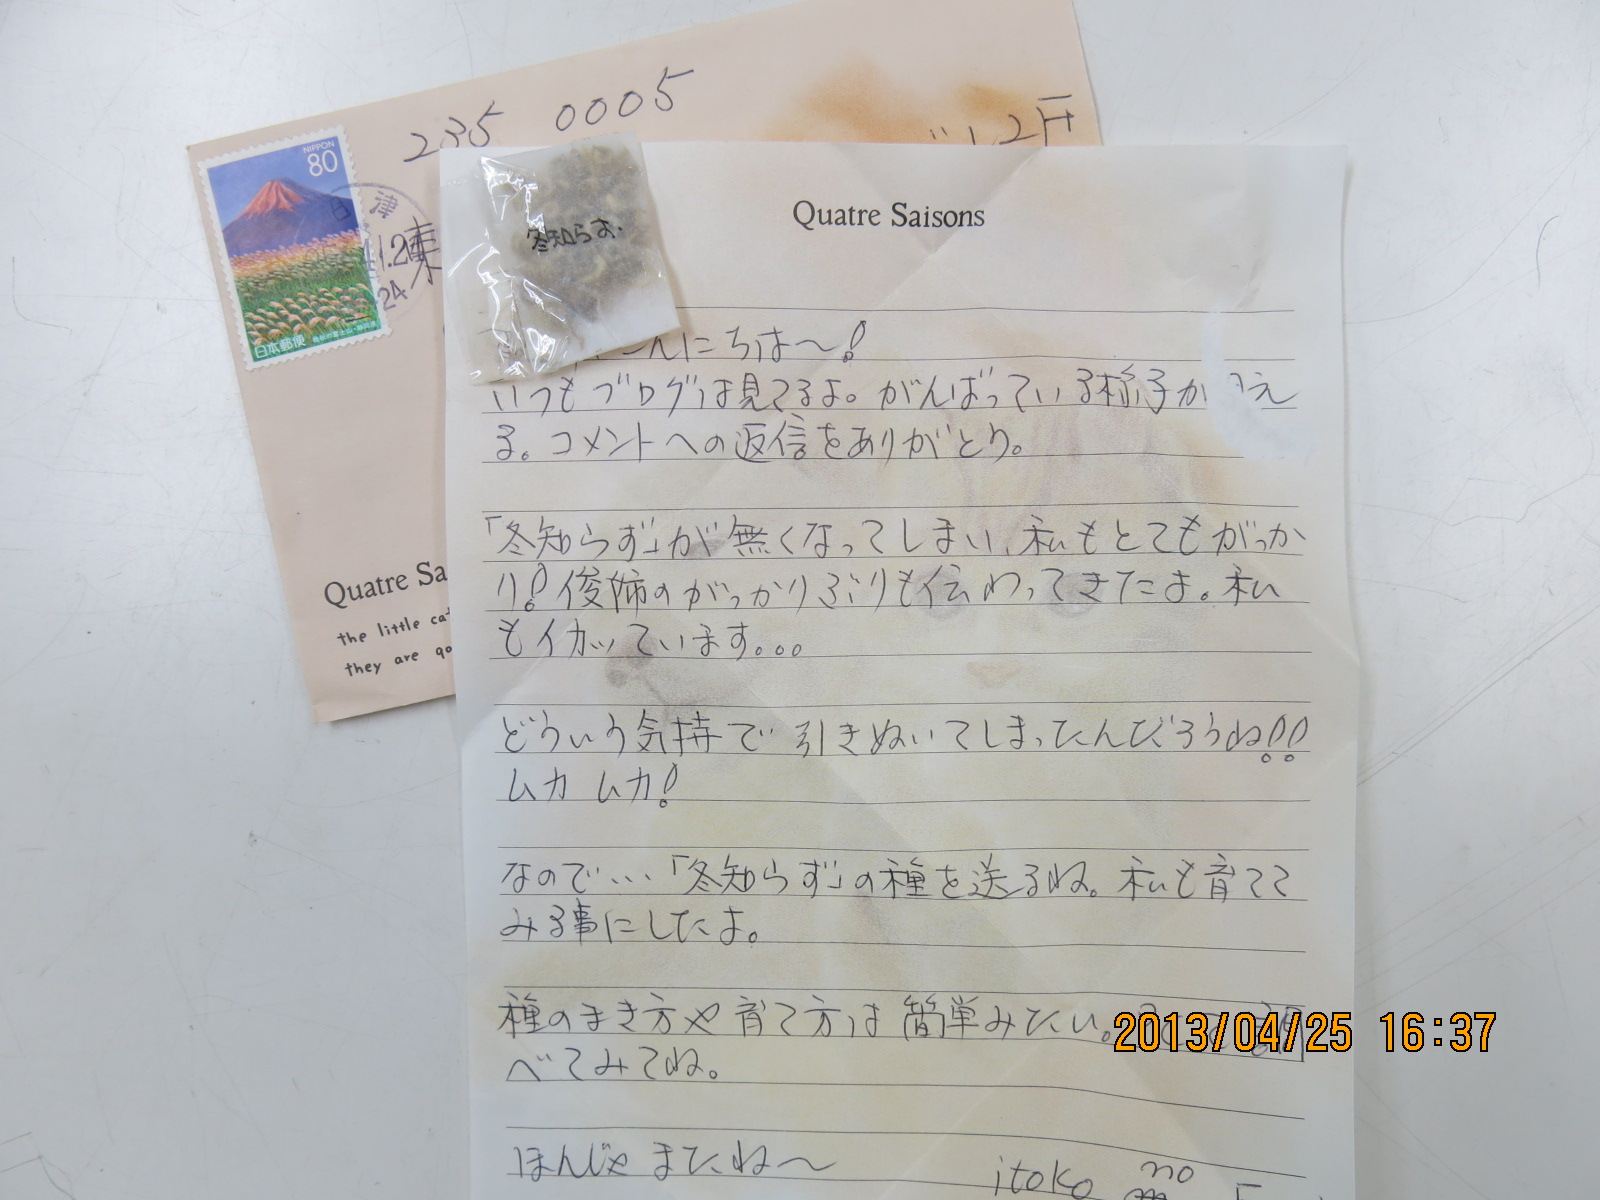 235 0005
NIPPON
80
日本郵便
津
東
24
Quatre Sa
the little cat
they are go
冬知らず.
Quatre Saisons
こんにちは〜!
いつもブログは見てるよ。がんばっている様子が え
る。コメントへの返信をありがとう。
「冬知らず」が無くなってしまい、私もとてもがっか
り!俊姉のがっかりぶりも伝わってきたよ。私
もイカッています。。。
どういう気持で引きぬいてしまったんだろうね!!
ムカ ムカ!
なので・・・「冬知らず」の種を送るね。私も育てて
みる事にしたよ。
種のまき方や育て方は簡単みたい。 調
べてみてね。
ほんじゃまたね〜
itoko no
2013/04/25 16:37